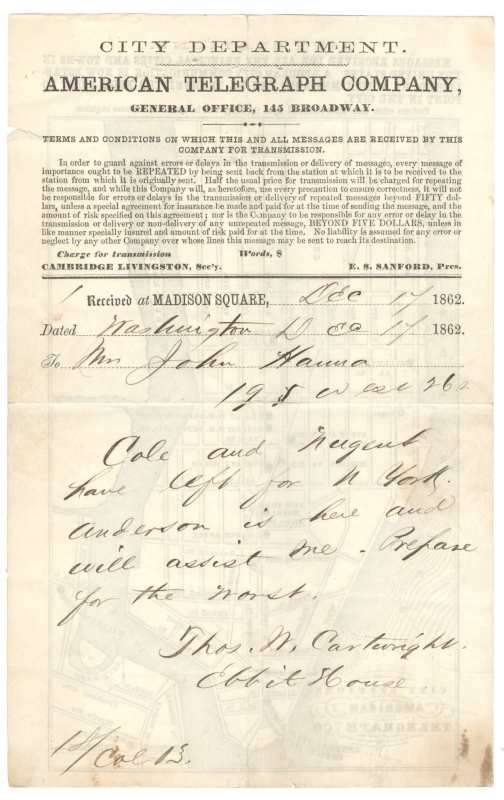 CITY DEPARTMENT.
AMERICAN TELEGRAPH COMPANY,
GENERAL OFFICE, 145 BROADWAY.
TERMS AND CONDITIONS ON WHICH THIS AND ALL MESSAGES ARE RECEIVED BY THIS
COMPANY FOR TRANSMISSION.
In order to guard against errors or delays in the transmission or delivery of messages, every message of
importance ought to be REPEATED by being sent back from the station at which it is to be received to the
station from which it is originally sent. Half the usual price for transmission will be charged for repeating
the message, and while this Company will, as heretofore, use every precaution to ensure correctness, it will not
be responsible for errors or delays in the transmission or delivery of repeated messages beyond FIFTY dol-
lars, unless a special agreement for insurance be made and paid for at the time of sending the message, and the
amount of risk specified on this agreement; nor is the Company to be responsible for any error or delay in the
transmission or delivery or non-delivery of any unrepeated message, BEYOND FIVE DOLLARS, unless in
like manner specially insured and amount of risk paid for at the time. No liability is assumed for any error or
neglect by any other Company over whose lines this message may be sent to reach its destination.
Charge for transmission Words, $
CAMBRIDGE LIVINGSTON, Sec'y. E. S. SANFORD, Pres.
Received at MADISON SQUARE, Dec 17 1862.
Dated Washington D Ca 17 1862.
To Mr John Hanna
West 26
Cole and Nugent
have left for N York.
Anderson is here and
will assist me. Prepare
for the worst.
Thos. W. Cartwright.
Ebbit House
18/ Col 13.